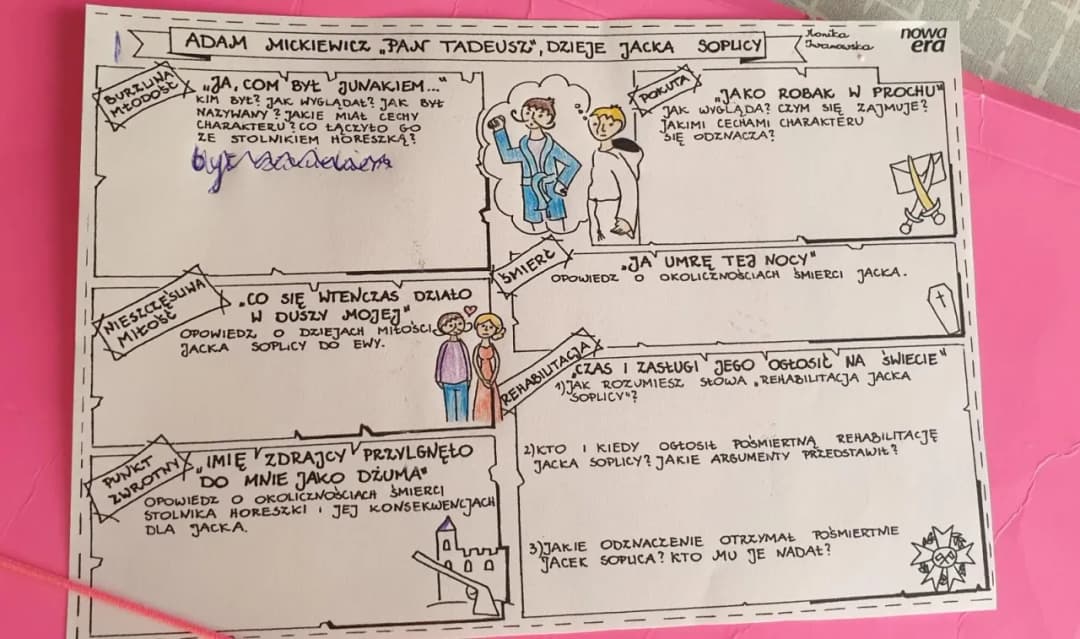 ADAM MICKIEWICZ „PAN TADEUSZ", DZIEJE JACKA SOPLICY
Monika
Iwanowska
nowa
era
BURZLIWA
MŁODOŚĆ
„JA, COM BYŁ JUNAKIEM..."
KIM BYŁ? JAK WYGLĄDAŁ? JAK BYŁ
NAZYWANY? JAKIE MIAŁ CECHY
CHARAKTERU? CO ŁĄCZYŁO GO
ZE STOLNIKIEM HORESZKĄ?
był
POKUTA
„JAKO ROBAK W PROCHU"
JAK WYGLĄDA? CZYM SIĘ ZAJMUJE?
JAKIMI CECHAMI CHARAKTERU
SIĘ ODZNACZA?
ŚMIERĆ
„JA UMRĘ TEJ NOCY"
OPOWIEDZ O OKOLICZNOŚCIACH ŚMIERCI JACKA.
NIESZCZĘŚLIWA
MIŁOŚĆ
„CO SIĘ WTENCZAS DZIAŁO
W DUSZY MOJEJ"
OPOWIEDZ O DZIEJACH MIŁOŚCI
JACKA SOPLICY DO EWY.
REHABILITACJA
„CZAS I ZASŁUGI JEGO OGŁOSIĆ NA ŚWIECIE"
1)JAK ROZUMIESZ SŁOWA „REHABILITACJA JACKA
SOPLICY"?
2)KTO I KIEDY OGŁOSIŁ POŚMIERTNĄ REHABILITACJĘ
JACKA SOPLICY? JAKIE ARGUMENTY PRZEDSTAWIŁ?
3)JAKIE ODZNACZENIE OTRZYMAŁ POŚMIERTNIE
JACEK SOPLICA? KTO MU JE NADAŁ?
PUNKT
ZWROTNY
„IMIĘ ZDRAJCY PRZYLGNĘŁO
DO MNIE JAKO DŻUMA"
OPOWIEDZ O OKOLICZNOŚCIACH ŚMIERCI
STOLNIKA HORESZKI I JEJ KONSEKWENCJACH
DLA JACKA.